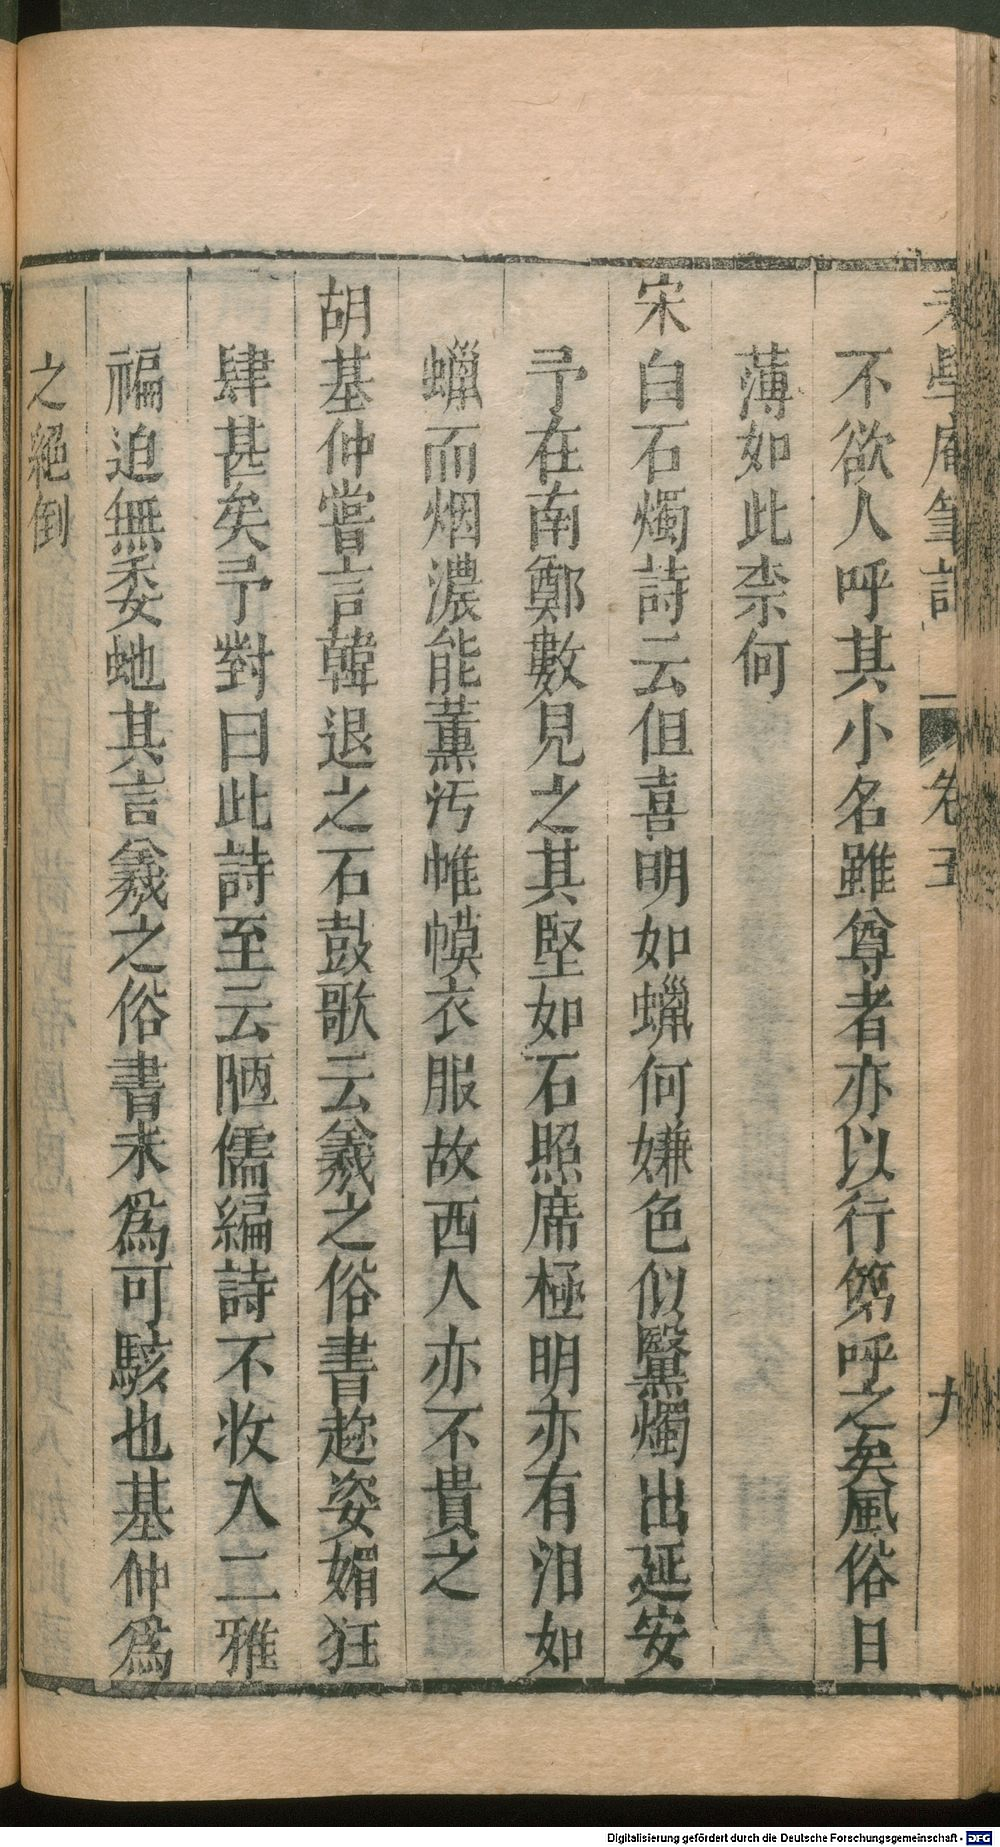 老學庵筆記 卷五 九
不欲人呼其小名雖尊者亦以行第呼之矣風俗日
薄如此柰何
宋白石燭詩云但喜明如蠟何嫌色似黳燭出延安
予在南鄭數見之其堅如石照席極明亦有泪如
蠟而烟濃能薰汚帷幙衣服故西人亦不貴之
胡基仲嘗言韓退之石鼓歌云羲之俗書趂姿媚狂
肆甚矣予對曰此詩至云陋儒編詩不收入二雅
褊迫無委虵其言羲之俗書未爲可駭也基仲爲
之絕倒
Digitalisierung gefördert durch die Deutsche Forschungsgemeinschaft - DFG